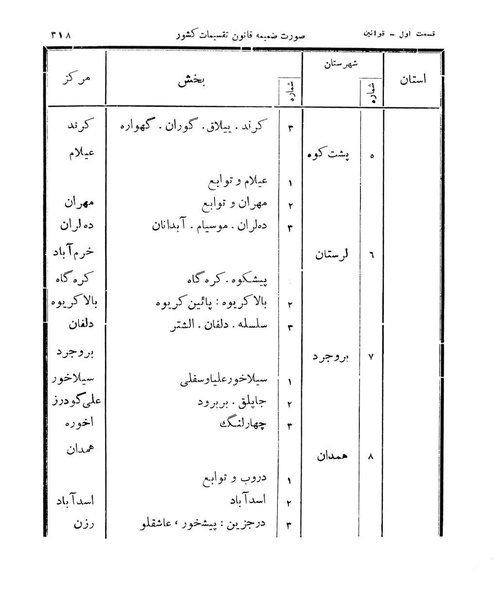 قسمت اول – قوانین صورت ضمیمه قانون تقسیمات کشور ۳۱۸
استان شهرستان شماره بخش شماره مرکز
۳ کرند . بیلاق . گوران . گهواره کرند
۵ پشت کوه عیلام
۱ عیلام و توابع
۲ مهران و توابع مهران
۳ ده‌لران . موسیام . آبدانان ده‌لران
۶ لرستان خرم آباد
پیشکوه . کره گاه کره گاه
۲ بالا کریوه : پائین کریوه بالا کریوه
۳ سلسله . دلفان . الشتر دلفان
۷ بروجرد بروجرد
۱ سیلاخور علیا و سفلی سیلاخور
۲ جاپلق . بربرود علی گودرز
۳ چهارلنگ اخوره
۸ همدان همدان
۱ دروب و توابع
۲ اسدآباد اسدآباد
۳ درجزین : پیشخور ، عاشقلو رزن